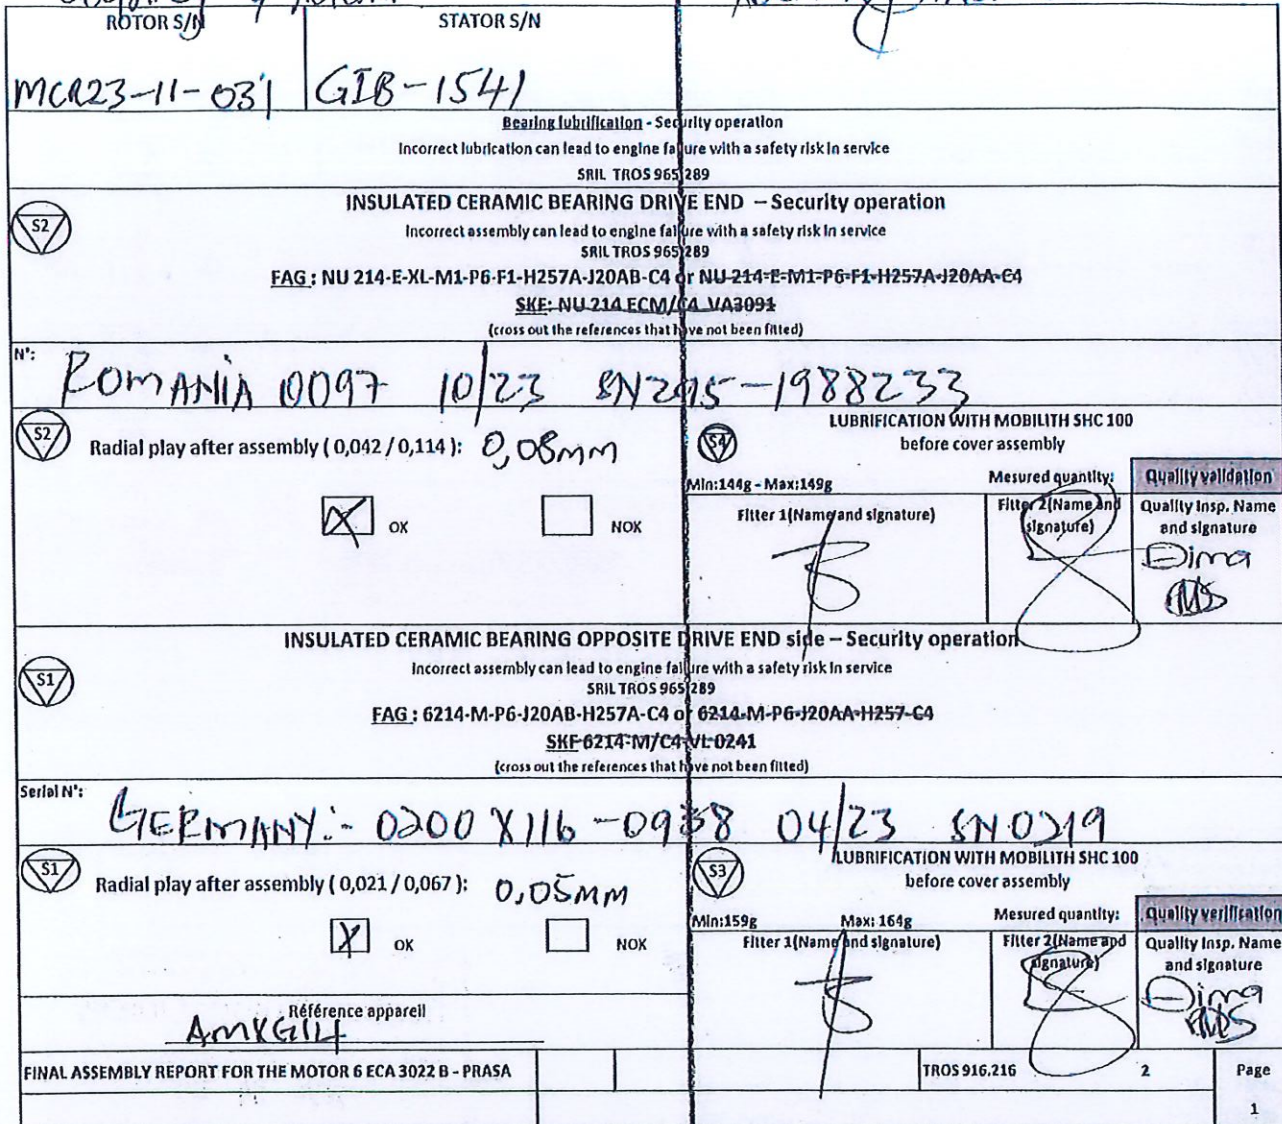 ROTOR S/N STATOR S/N
MCR23-11-031 GIB-1541
Bearing lubrification - Security operation
Incorrect lubrication can lead to engine failure with a safety risk in service
SRIL TROS 965 289
S2 INSULATED CERAMIC BEARING DRIVE END – Security operation
Incorrect assembly can lead to engine failure with a safety risk in service
SRIL TROS 965 289
FAG : NU 214-E-XL-M1-P6-F1-H257A-J20AB-C4 or NU 214-E-M1-P6-F1-H257A-J20AA-C4
SKF: NU 214 ECM/C4 VA3091
(cross out the references that have not been fitted)
N°: ROMANIA 0097 10/23 SN295-1988233
S2 Radial play after assembly ( 0,042 / 0,114 ): 0,08mm
OK NOK
S4 LUBRIFICATION WITH MOBILITH SHC 100
before cover assembly
Min:144g - Max:149g Mesured quantity: Quality validation
Fitter 1(Name and signature) Fitter 2(Name and signature) Quality Insp. Name and signature
Dima
INSULATED CERAMIC BEARING OPPOSITE DRIVE END side – Security operation
S1 Incorrect assembly can lead to engine failure with a safety risk in service
SRIL TROS 965 289
FAG : 6214-M-P6-J20AB-H257A-C4 or 6214-M-P6-J20AA-H257-C4
SKF 6214-M/C4 VL 0241
(cross out the references that have not been fitted)
Serial N°: GERMANY:- 0200 X116-0938 04/23 SN0219
S1 Radial play after assembly ( 0,021 / 0,067 ): 0,05mm
X OK NOK
S3 LUBRIFICATION WITH MOBILITH SHC 100
before cover assembly
Min:159g Max: 164g Mesured quantity: Quality verification
Fitter 1(Name and signature) Fitter 2(Name and signature) Quality Insp. Name and signature
Dima
Référence appareil
AMKG14
FINAL ASSEMBLY REPORT FOR THE MOTOR 6 ECA 3022 B - PRASA TROS 916.216 2 Page
1